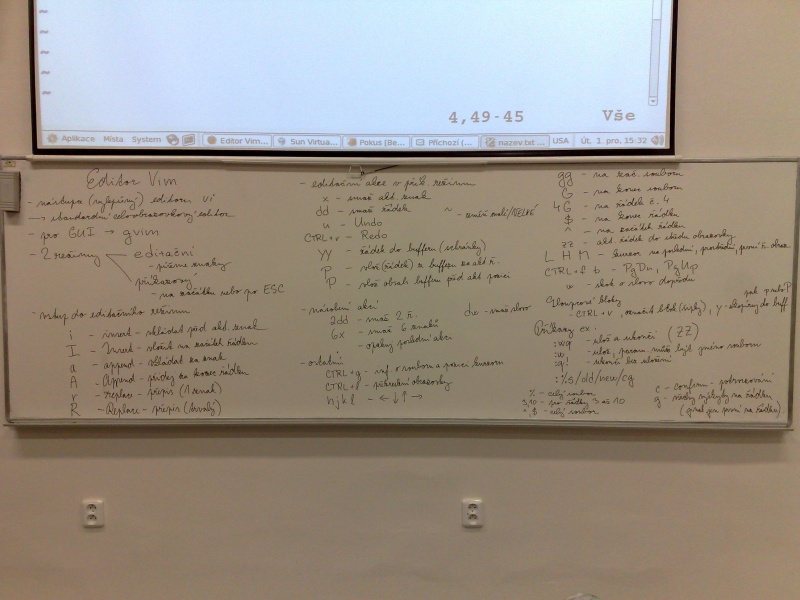 ~
~
~
~
~
4,49-45 Vše
Aplikace Místa System Editor Vim... Sun Virtua... Pokus (Be... Příchozí (... nazev.txt ... USA Út, 1. pro, 15:32
Editor Vim
- nástupce (vylepšený) editoru vi
→ standardní celoobrazovkový editor
- pro GUI → gvim
- 2 režimy
editační
- píšeme znaky
příkazový
- na začátku nebo po ESC
- vstup do editačního režimu
i - insert - vkládat před akt. znak
I - Insert - vložit na začátek řádku
a - append - vkládat za znak
A - Append - přidej za konec řádku
r - replace - přepis (1 znak)
R - Replace - přepis (trvalý)
- editační akce v přík. režimu
x - smaž akt. znak
dd - smaž řádek
~ - změň malé/VELKÉ
u - Undo
CTRL+r - Redo
yy - řádek do bufferu (schránky)
p - vlož (řádek) z bufferu za akt ř.
P - vlož obsah bufferu před akt pozici
- násobení akcí
2dd - smaž 2 ř.
dw - smaž slovo
6x - smaž 6 znaků
. - opakuj poslední akci
- ostatní
CTRL+g - inf o souboru a pozici kurzoru
CTRL+l - překreslení obrazovky
hjkl - ← ↓ ↑ →
gg - na zač. souboru
G - na konec souboru
4G - na řádek č. 4
$ - na konec řádku
^ - na začátek řádku
zz - akt. řádek do středu obrazovky
L H M - kurzor na poslední, prostřední, první ř. obraz.
CTRL+f b - PgDn, PgUp
w - skok o slovo dopředu
Sloupcové bloky
- CTRL+v, označit blok (šipky), y - zkopíruj do buff.
pak p nebo P
Příkazy ex.
:wq - ulož a ukonči (ZZ)
:w - ulož, param. může být jméno souboru
:q! - ukonči bez uložení
:%s/old/new/cg
% - celý soubor
3,10 - pro řádky 3 až 10
$ - celý soubor
c - confirm - potvrzování
g - všechny výskyty na řádku
(jinak jen první na řádku)